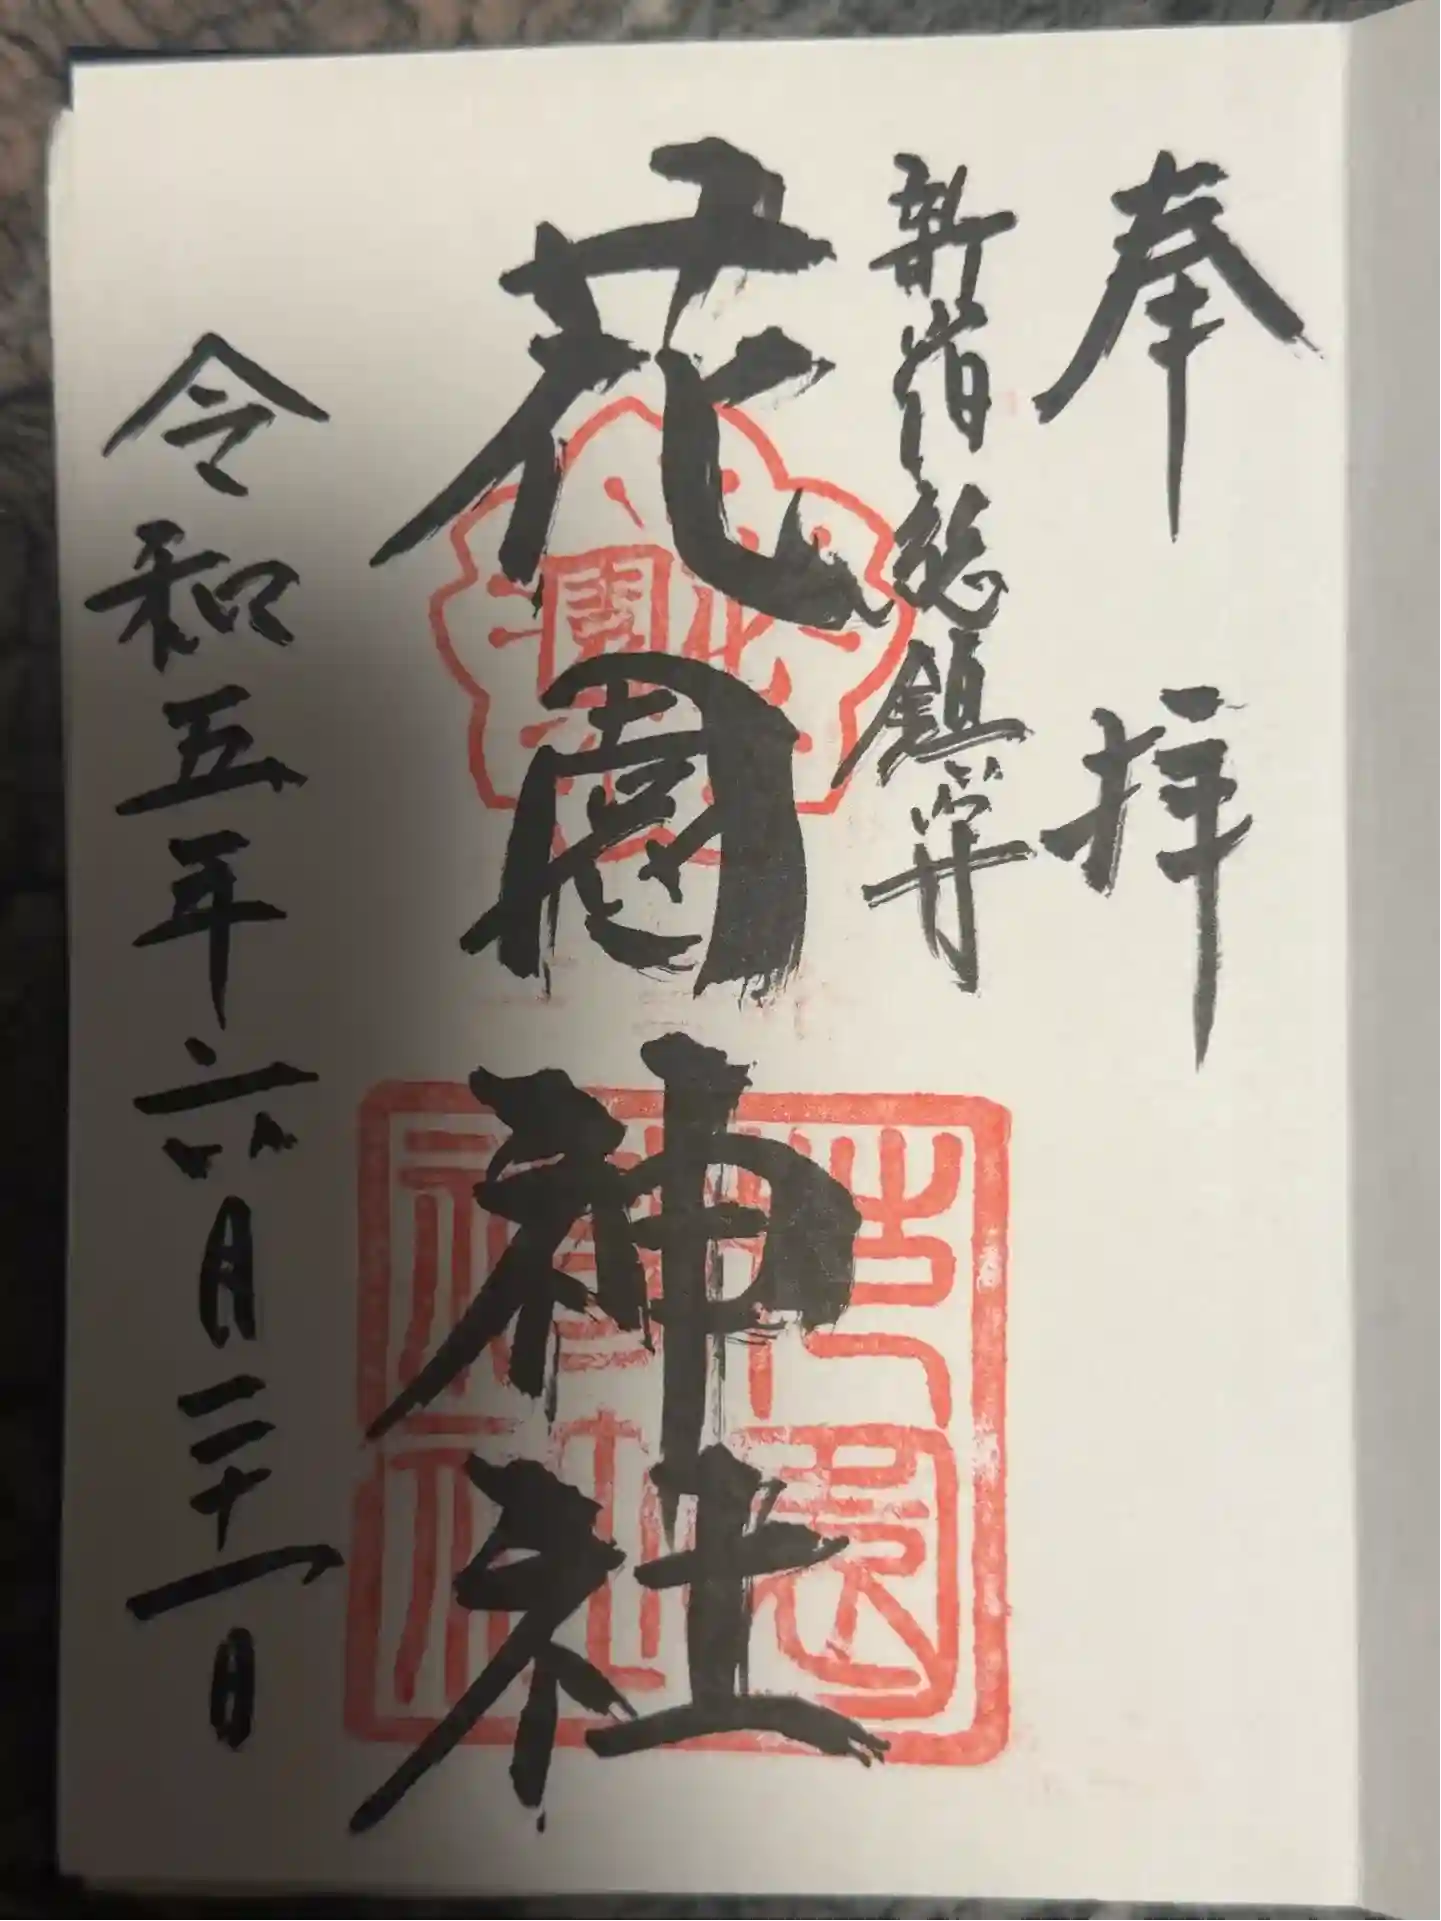 奉拝
新宿総鎮守
花園神社
令和五年六月二十一日
花園
花園神社